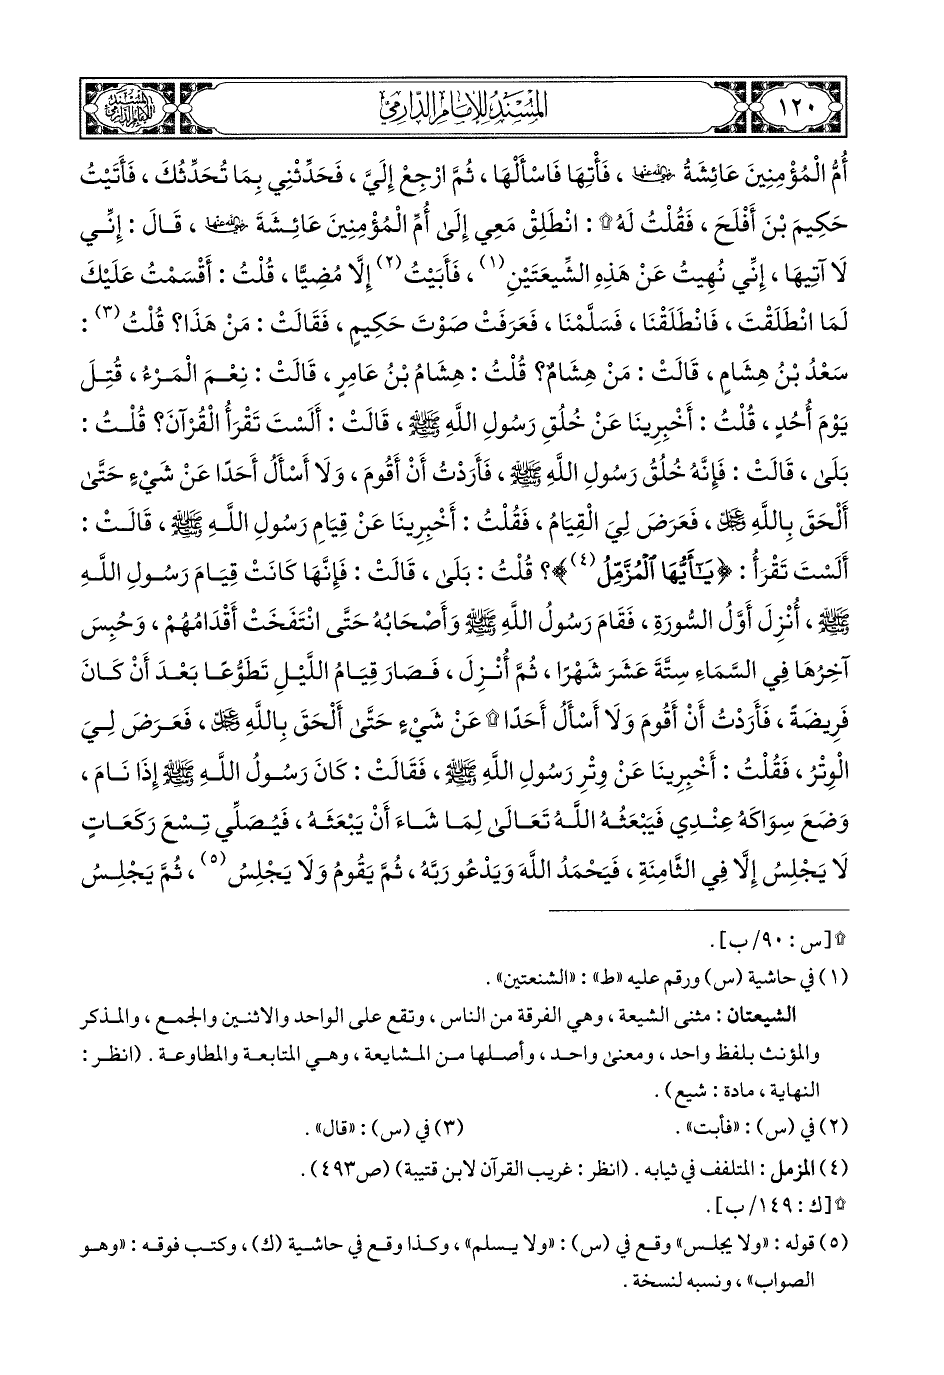 ١٢٠
المسند للإمام الدارمي
المسند للإمام الدارمي
أُمُّ الْمُؤْمِنِينَ عَائِشَةُ رضي الله عنها ، فَأْتِهَا فَاسْأَلْهَا ، ثُمَّ ارْجِعْ إِلَيَّ ، فَحَدِّثْنِي بِمَا تُحَدِّثُكَ ، فَأَتَيْتُ
حَكِيمَ بْنَ أَفْلَحَ ، فَقُلْتُ لَهُ ۩ : انْطَلِقْ مَعِي إِلَى أُمِّ الْمُؤْمِنِينَ عَائِشَةَ رضي الله عنها ، قَالَ : إِنِّي
لَا آتِيهَا ، إِنِّي نُهِيتُ عَنْ هَذِهِ الشِّيعَتَيْنِ(١) ، فَأَبَيْتُ(٢) إِلَّا مُضِيًّا ، قُلْتُ : أَقْسَمْتُ عَلَيْكَ
لَمَا انْطَلَقْتَ ، فَانْطَلَقْنَا ، فَسَلَّمْنَا ، فَعَرَفَتْ صَوْتَ حَكِيمٍ ، فَقَالَتْ : مَنْ هَذَا؟ قُلْتُ(٣) :
سَعْدُ بْنُ هِشَامٍ ، قَالَتْ : مَنْ هِشَامٌ؟ قُلْتُ : هِشَامُ بْنُ عَامِرٍ ، قَالَتْ : نِعْمَ الْمَرْءُ ، قُتِلَ
يَوْمَ أُحُدٍ ، قُلْتُ : أَخْبِرِينَا عَنْ خُلُقِ رَسُولِ اللَّهِ ﷺ ، قَالَتْ : أَلَسْتَ تَقْرَأُ الْقُرْآنَ؟ قُلْتُ :
بَلَى ، قَالَتْ : فَإِنَّهُ خُلُقُ رَسُولِ اللَّهِ ﷺ ، فَأَرَدْتُ أَنْ أَقُومَ ، وَلَا أَسْأَلُ أَحَدًا عَنْ شَيْءٍ حَتَّى
أَلْحَقَ بِاللَّهِ ﷻ ، فَعَرَضَ لِيَ الْقِيَامُ ، فَقُلْتُ : أَخْبِرِينَا عَنْ قِيَامِ رَسُولِ اللَّهِ ﷺ ، قَالَتْ :
أَلَسْتَ تَقْرَأُ : ﴿يَٰٓأَيُّهَا ٱلْمُزَّمِّلُ(٤)﴾؟ قُلْتُ : بَلَى ، قَالَتْ : فَإِنَّهَا كَانَتْ قِيَامَ رَسُولِ اللَّهِ
ﷺ ، أُنْزِلَ أَوَّلُ السُّورَةِ ، فَقَامَ رَسُولُ اللَّهِ ﷺ وَأَصْحَابُهُ حَتَّى انْتَفَخَتْ أَقْدَامُهُمْ ، وَحُبِسَ
آخِرُهَا فِي السَّمَاءِ سِتَّةَ عَشَرَ شَهْرًا ، ثُمَّ أُنْزِلَ ، فَصَارَ قِيَامُ اللَّيْلِ تَطَوُّعًا بَعْدَ أَنْ كَانَ
فَرِيضَةً ، فَأَرَدْتُ أَنْ أَقُومَ وَلَا أَسْأَلُ أَحَدًا ۩ عَنْ شَيْءٍ حَتَّى أَلْحَقَ بِاللَّهِ ﷻ ، فَعَرَضَ لِيَ
الْوِتْرُ ، فَقُلْتُ : أَخْبِرِينَا عَنْ وِتْرِ رَسُولِ اللَّهِ ﷺ ، فَقَالَتْ : كَانَ رَسُولُ اللَّهِ ﷺ إِذَا نَامَ ،
وَضَعَ سِوَاكَهُ عِنْدِي فَيَبْعَثُهُ اللَّهُ تَعَالَى لِمَا شَاءَ أَنْ يَبْعَثَهُ ، فَيُصَلِّي تِسْعَ رَكَعَاتٍ
لَا يَجْلِسُ إِلَّا فِي الثَّامِنَةِ ، فَيَحْمَدُ اللَّهَ وَيَدْعُو رَبَّهُ ، ثُمَّ يَقُومُ وَلَا يَجْلِسُ(٥) ، ثُمَّ يَجْلِسُ
۩ [س : ٩٠/ ب] .
(١) في حاشية (س) ورقم عليه «ط» : «الشنعتين» .
الشيعتان : مثنى الشيعة ، وهي الفرقة من الناس ، وتقع على الواحد والاثنين والجمع ، والمذكر
والمؤنث بلفظ واحد ، ومعنى واحد ، وأصلها من المشايعة ، وهي المتابعة والمطاوعة . (انظر :
النهاية ، مادة : شيع) .
(٢) في (س) : «فأبت» . (٣) في (س) : «قال» .
(٤) المزمل : المتلفف في ثيابه . (انظر : غريب القرآن لابن قتيبة) (ص٤٩٣) .
۩ [ك : ١٤٩/ ب] .
(٥) قوله : «ولا يجلس» وقع في (س) : «ولا يسلم» ، وكذا وقع في حاشية (ك) ، وكتب فوقه : «وهو
الصواب» ، ونسبه لنسخة .